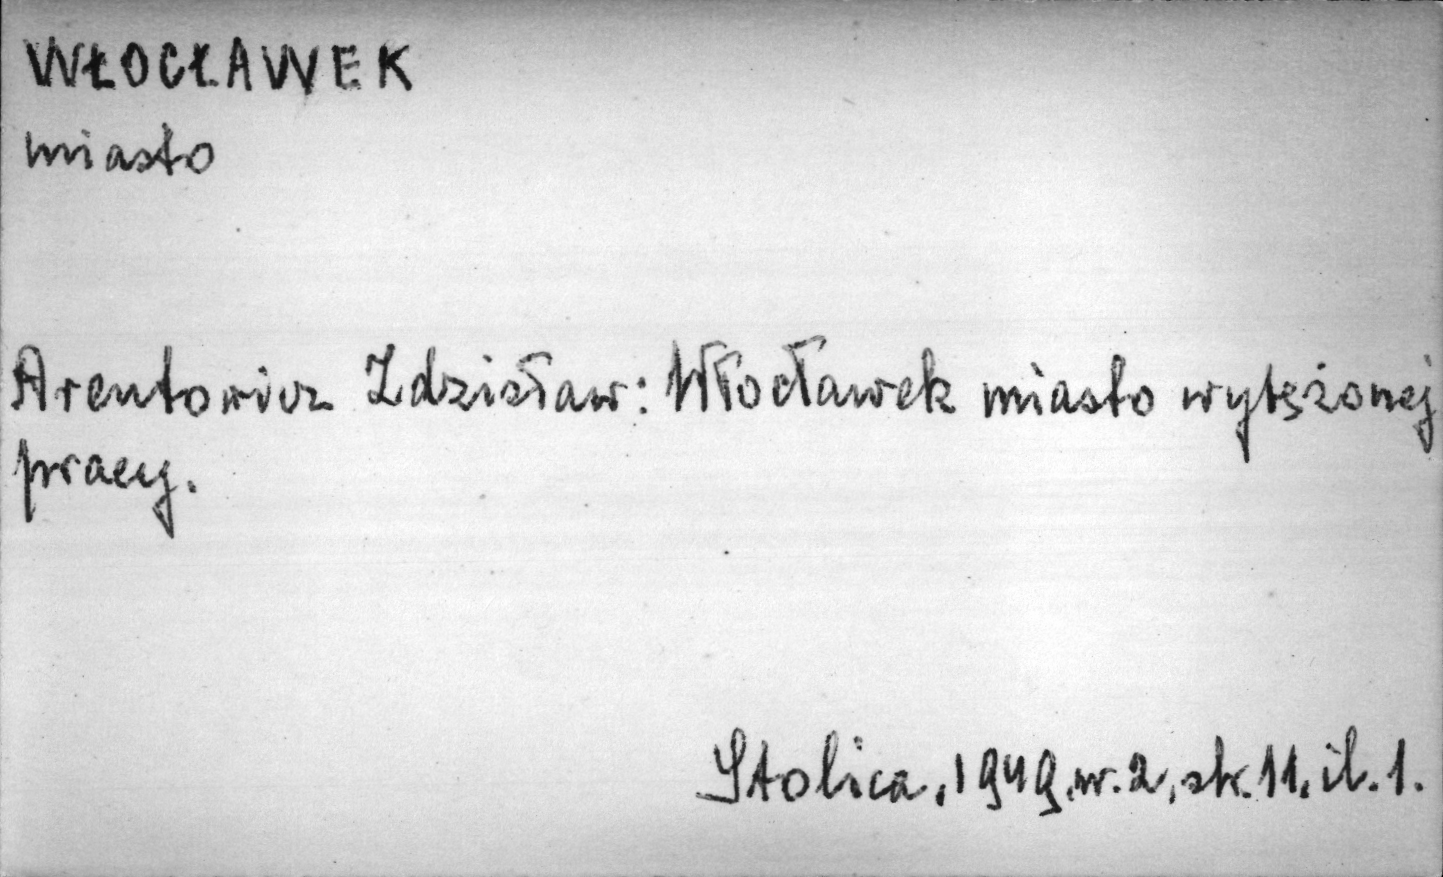 WŁOCŁAWEK
miasto
Arentowicz Zdzisław: Włocławek miasto wytężonej
pracy.
Stolica, 1949, nr. 2, str. 11, il. 1.